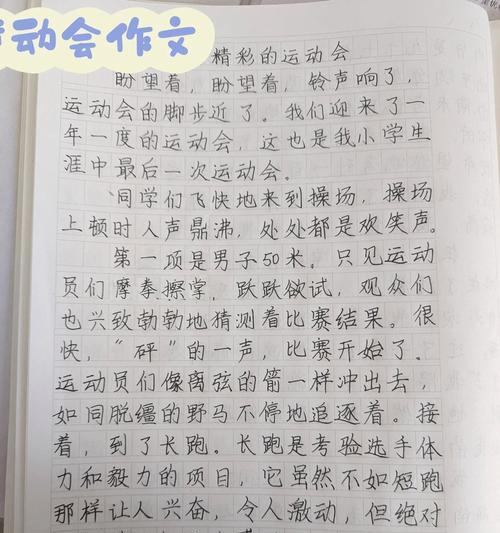 运动会作文
精彩的运动会
盼望着，盼望着，铃声响了，
运动会的脚步近了。我们迎来了一
年一度的运动会，这也是我小学生
涯中最后一次运动会。
同学们飞快地来到操场，操场
上顿时人声鼎沸，处处都是欢笑声。
第一项是男子50米。只见运动
员们摩拳擦掌，跃跃欲试，观众们
也兴致勃勃地猜测着比赛结果。很
快，“砰”的一声，比赛开始了。
运动员们像离弦的箭一样冲出去，
如同脱缰的野马不停地追逐着。接
着，到了长跑。长跑是考验选手体
力和毅力的项目，它虽然不如短跑
那样让人兴奋，令人激动，但绝对